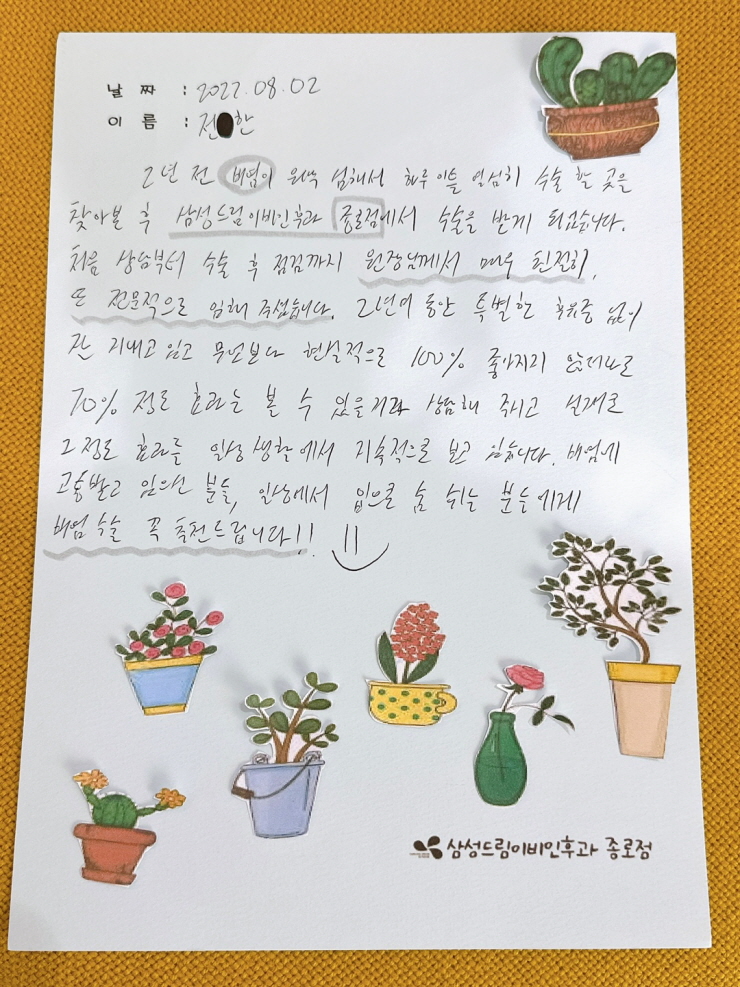 날 짜 : 2022.08.02
이 름 : 전 한
2년 전 비염이 워낙 심해서 하루 이틀 열심히 수술 할 곳을
찾아본 후 삼성드림이비인후과 종로점에서 수술을 받게 되었습니다.
처음 상담부터 수술 후 점검까지 원장님께서 매우 친절히,
또 전문적으로 임해 주셨습니다. 2년여 동안 특별한 후유증 없이
잘 지내고 있고 무엇보다 현실적으로 100% 좋아지지 않더라도
70% 정도 효과는 볼 수 있을거라 상담해 주시고 실제로
그 정도 효과를 일상생활에서 지속적으로 보고 있습니다. 비염에
고통받고 있으신 분들, 일상에서 입으로 숨 쉬는 분들에게
비염 수술 꼭 추천드립니다!!
삼성드림이비인후과 종로점